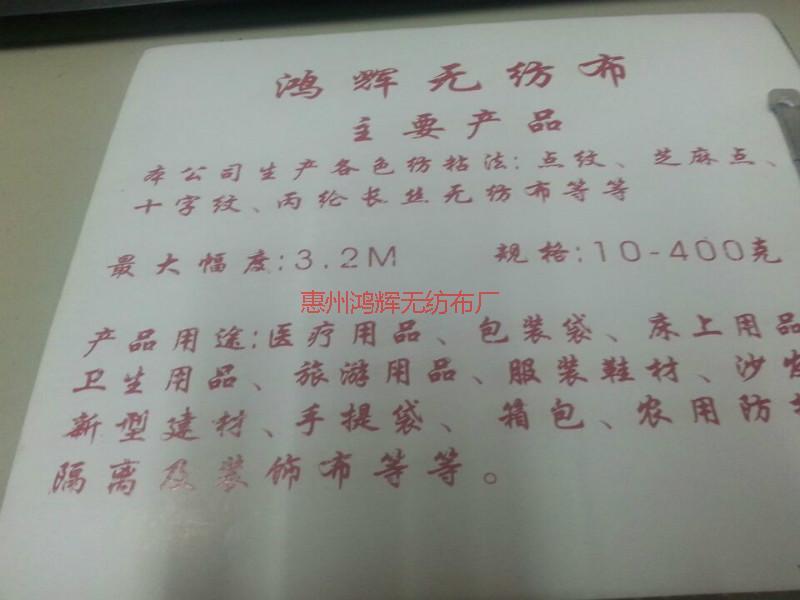 鸿辉无纺布
主要产品
本公司生产各色纺粘法:点纹、芝麻点、
十字纹、丙纶长丝无纺布等等
最大幅度:3.2M 规格:10-400克
惠州鸿辉无纺布厂
产品用途:医疗用品、包装袋、床上用品
卫生用品、旅游用品、服装鞋材、沙发
新型建材、手提袋、箱包、农用防
隔离及装饰布等等。